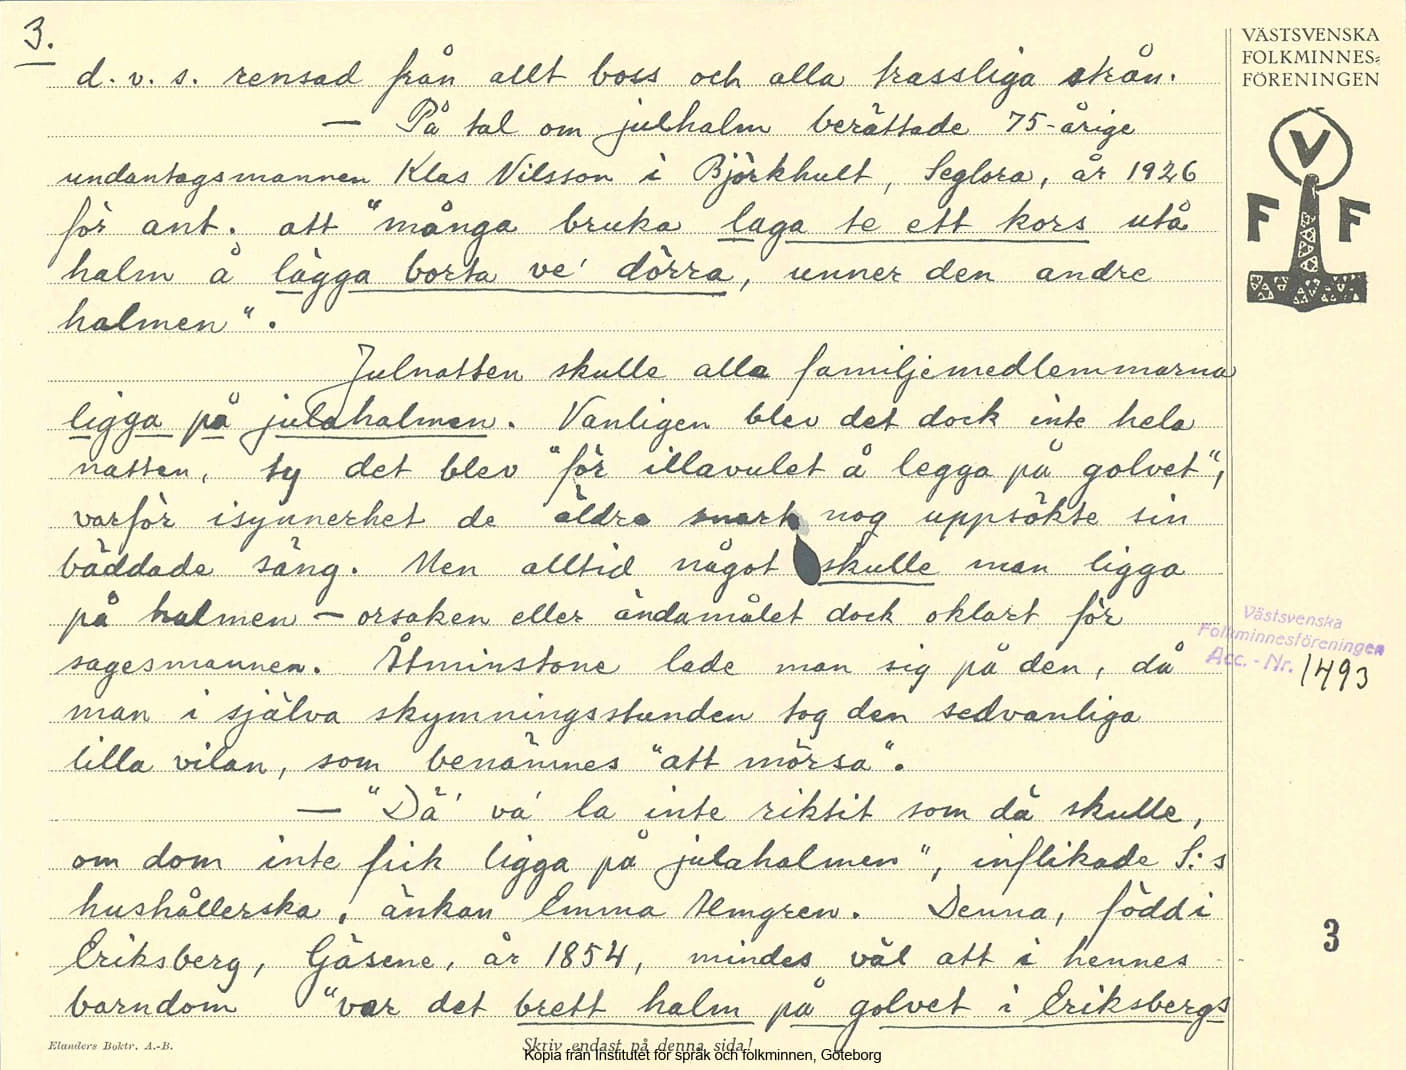 3.
d. v. s. rensad från allt boss och alla trassliga strån.
— På tal om julhalm berättade 75-årige
undantagsmannen Klas Nilsson i Björkhult, Seglora, år 1926
för ant. att "många bruka laga te ett kors utå
halm å lägga borta ve' dörra, unner den andre
halmen".
Julnatten skulle alla familjemedlemmarna
ligga på julahalmen. Vanligen blev det dock inte hela
natten, ty det blev "för illavulet å legga på golvet",
varför isynnerhet de äldre snart nog uppsökte sin
bäddade säng. Men alltid något skulle man ligga
på halmen — orsaken eller ändamålet dock oklart för
sagesmannen. Åtminstone lade man sig på den, då
man i själva skymningsstunden tog den sedvanliga
lilla vilan, som benämnes "att mörsa".
— "Dä' va' la inte riktit som dä skulle,
om dom inte fick ligga på julahalmen", inflikade S:s
hushållerska, änkan Emma Almgren. Denna, född i
Eriksberg, Gäsene, år 1854, mindes väl att i hennes
barndom "var det brett halm på golvet i Eriksbergs
Elanders Boktr. A.-B.
Skriv endast på denna sida!
Kopia från Institutet för språk och folkminnen, Göteborg
VÄSTSVENSKA
FOLKMINNES-
FÖRENINGEN
V
F F
Västsvenska
Folkminnesföreningen
Acc.-Nr. 1493
3